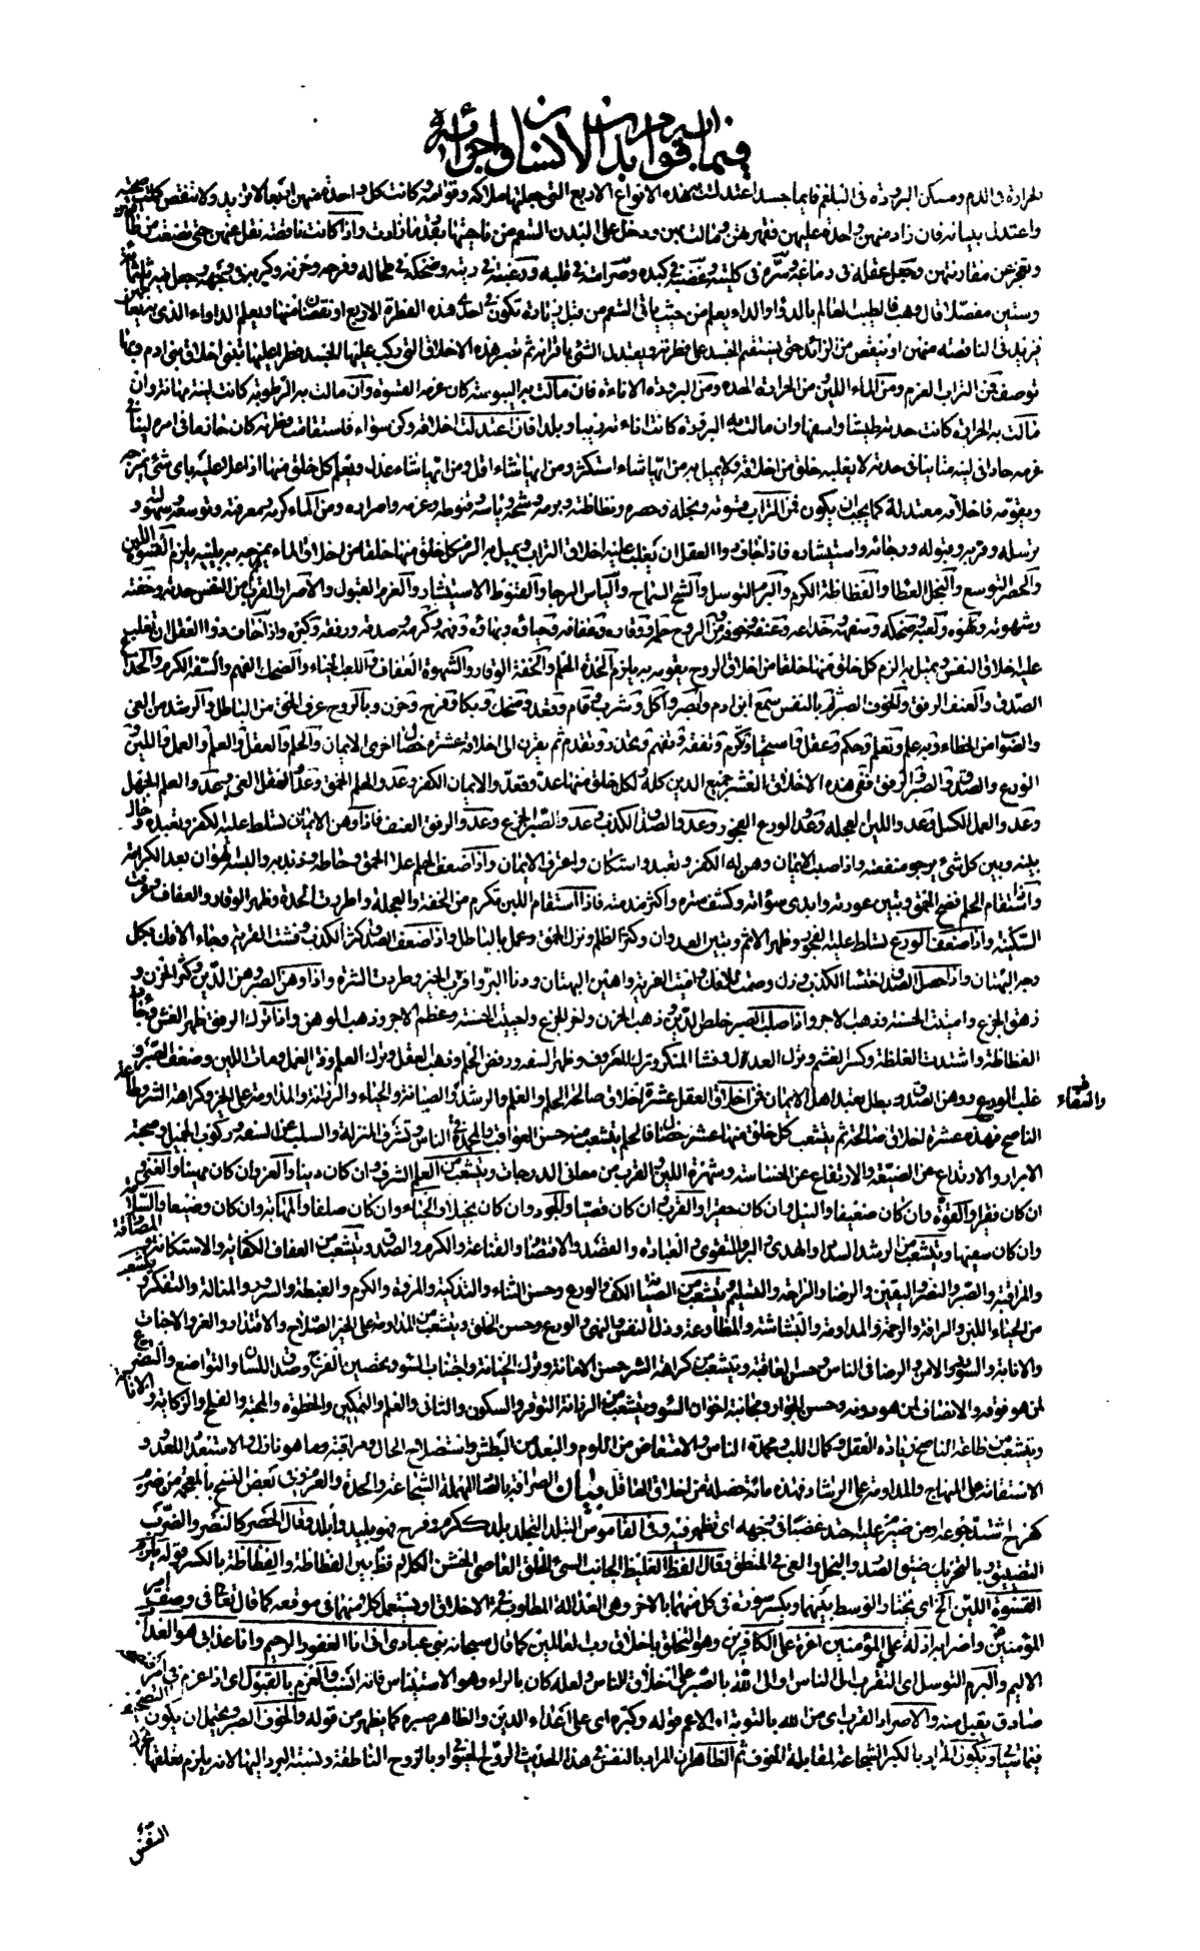 فيما به قوام بدن الانسان واجزائه
الحرارة في الدم ومسكن البرودة في البلغم فايما جسد اعتدلت به هذه الانواع الاربع التي جعلتها ملاكه وقوامه وكانت كل واحدة منهن اربعا لا تزيد ولا تنقص كملت صحته
واعتدل بنيانه فان زاد منهن واحدة عليهن فقهرتهن ومالت بهن ودخل على البدن السقم من ناحيتها بقدر ما زادت واذا كانت ناقصة تقل عنهن حتى تضعف من طاقتهن
وتعجز عن مقارنتهن وجعل عقله في دماغه وسره في كليته وغضبه في كبده وصرامته في قلبه ورغبته في ريته وضحكه في طحاله وفرحه وحزنه وكربه في وجهه وجعل فيه ثلثمائة
وستين مفصلا قال وهب فالطبيب العالم بالداء والدواء يعلم من حيث ياتي السقم من قبل زيادة تكون في احدى هذه الفطرة الاربع او نقصان منها ويعلم الدواء الذي به يعالجهن
فيزيد في الناقصة منهن او ينقص من الزائد حتى يستقيم الجسد على فطرته ويعتدل الشئ باقرانه ثم تصير هذه الاخلاق التي ركب عليها الجسد فطرا عليها تبنى اخلاق بني ادم وبها
توصف فمن التراب العزم ومن الماء اللين ومن الحرارة الحدة ومن البرودة الاناة فان مالت به اليبوسة كان عزمه القسوة وان مالت به الرطوبة كانت لينه مهانة وان
مالت به الحرارة كانت حدته طيشا وسفها وان مالت به البرودة كانت اناته ريبا وبلدا فان اعتدلت اخلاقه وكن سواء واستقامت فطرته كان حازما في امره لينا في
عزمه حادا في لينه متانيا في حدته لا يغلبه خلق من اخلاقه ولا يميل به من ايها شاء استكثر ومن ايها شاء اقل ومن ايها شاء عدل ويعلم كل خلق منها اذا علا عليه باي شئ يمزجه
ويقومه فاخلاقه معتدلة كما يجب ان يكون فمن التراب قسوته وبخله وحصره وفظاظته وبرمه وشحه وياسه وقنوطه وعزمه واصراره ومن الماء كرمه ومعروفه وتوسعه وسهولته و
ترسله وقربه وقبوله ورجائه واستبشاره فاذا خاف ذو العقل ان يغلب عليه اخلاق التراب ويميل به الزم كل خلق منها خلقا من اخلاق الماء يمزجه به بلينه يلزم القسوة اللين
والحصر التوسع والبخل العطاء والفظاظة الكرم والبرم التوسل والشح السماح والياس الرجاء والقنوط الاستبشار والعزم القبول والاصرار القرب ثم من النفس حدته وخفته
وشهوته ولهوه ولعبه وضحكه وسفهه وخداعه وعنفه وخوفه ومن الروح حلمه ووقاره وعفافه وحيائه وبهاؤه وفهمه وكرمه وصدقه ورفقه وكبره واذا خاف ذو العقل ان تغلب
عليه اخلاق النفس وتميل به الزم كل خلق منها خلقا من اخلاق الروح يقومه به يلزم الحدة الحلم والخفة الوقار والشهوة العفاف واللعب الحياء والضحك الفهم والسفه الكرم والخداع
الصدق والعنف الرفق والخوف الصبر ثم بالنفس سمع ابن ادم وابصر واكل وشرب وقام وقعد وضحك وبكا وفرح وحزن وبالروح عرف الحق من الباطل والرشد من الغي
والصواب من الخطاء وبه علم وتعلم وحكم وعقل واستحيا وتكرم وتفقه وتفهم وتحذر وتقدم ثم يقرن الى اخلاقه عشرة خصال اخرى الايمان والحلم والعقل والعلم والعمل واللين و
الورع والصدق والصبر والرفق ففي هذه الاخلاق العشر جميع الدين كله ولكل خلق منها عدو فعدو الايمان الكفر وعدو الحلم الحمق وعدو العقل الغي وعدو العلم الجهل
وعدو العمل الكسل وعدو اللين العجلة وعدو الورع الفجور وعدو الصدق الكذب وعدو الصبر الجزع وعدو الرفق العنف فاذا وهن الايمان تسلط عليه الكفر وتعبده وحال
بينه وبين كل شئ يرجو منفعته واذا صلب الايمان وهن له الكفر وتعبد واستكان واعترف الايمان واذا ضعف الحلم علا الحمق وحاطه وذبذبه والبسه الهوان بعد الكرامة
واذا استقام الحلم فضح الحمق وتبين عورته وابدى سواته وكشف ستره واكثر مذمته فاذا استقام اللين تكرم من الخفة والعجلة واطردت الحدة وظهر الوقار والعفاف وعرفت
السكينة واذا ضعف الورع تسلط عليه الفجور وظهر الاثم وتبين العدوان وكثر الظلم ونزل الحمق وعمل بالباطل واذا ضعف الصدق كثر الكذب وفشت الفرية وجاء الافك بكل
وجه البهتان واذا حصل الصدق اختسا الكذب وذل وصمت الافك واميتت الفرية واهين البهتان ودنا البر واقترب الخير وطردت الشرة واذا وهن الصبر وهن الدين وكثر الحزن و
زهق الجزع واميتت الحسنة وذهب الاجر واذا صلب الصبر خلص الدين وذهب الحزن واخر الجزع واحييت الحسنة وعظم الاجر وذهب الوهن واذا ترك الرفق ظهر الغش وجاءت
الفظاظة واشتدت الغلظة وكثر الغشم وترك العدل وفشا المنكر وترك المعروف وظهر السفه ورفض الحلم وذهب العقل وترك العلم وفتر العمل ومات اللين وضعف الصبر و
غلب الورع ووهن الصدق وبطل تعبد اهل الايمان فمن اخلاق العقل عشرة اخلاق صالحة الحلم والعلم والرشد والصيانة والحياء والرزانة والمداومة على الخير وكراهة الشر وطاعة
والعفاف
الناصح فهذه عشرة اخلاق صالحة ثم يتشعب كل خلق منها عشر خصال فالحلم يتشعب منه حسن العواقب والمحمدة في الناس وتشرف المنزلة والسلب عن السفه وركوب الجميل وصحبة
الابرار والارتداع عن الضيعة والارتفاع عن الخساسة وشهرة اللين والقرب من معالي الدرجات ويتشعب من العلم الشرف وان كان دنيا والعز وان كان مهينا والغنى و
ان كان فقيرا والقوة وان كان ضعيفا والنبل وان كان حقيرا والقرب وان كان قصيا والجود وان كان بخيلا والحياء وان كان صلفا والمهابة وان كان وضيعا والسلامة
وان كان سفيها ويتشعب من الرشد السداد والهدى والبر والتقوى والعبادة والقصد والاقتصاد والقناعة والكرم والصدق ويتشعب من العفاف الكفاية والاستكانة والمصادقة
والمراقبة والصبر والنصر واليقين والرضا والراحة والتسليم ويتشعب من الصيانة الكف والورع وحسن الثناء والتزكية والمروة والكرم والغبطة والسرور والمنالة والتفكر ويتشعب
من الحياء اللين والرافة والرحمة والمداومة والبشاشة والمطاوعة وذل النفس والنهى والورع وحسن الخلق ويتشعب من المداومة على الخير الصلاح والاقتدار والعز والاخبات
والانابة والسودد والامن والرضا في الناس وحسن العاقبة ويتشعب من كراهة الشر حسن الامانة وترك الخيانة واجتناب السوء وتحصين الفرج وصدق اللسان والتواضع والتضرع
لمن هو فوقه والانصاف لمن هو دونه وحسن الجوار ومجانبة اخوان السوء ويتشعب من الرزانة التوقر والسكون والتاني والعلم والتمكين والحظوة والمحبة والفلح والزكاية والانابة
ويتشعب من طاعة الناصح زيادة العقل وكمال اللب ومحمدة الناس والامتعاض من اللوم والبعد من البطش واستصلاح الحال ومراقبة ما هو نازل والاستعداد للعدو و
الاستقامة على المنهاج والمداومة على الرشاد فهذه مائة خصلة من اخلاق العاقل بيان الصرامة بالصاد المهملة الشجاعة والحدة والعزم وفي بعض النسخ بالمعجمة من ضرم
كفرح اشتد جوعه او من ضرم عليه احتد غضبا قوله بلدا في القاموس التبلد التجلد بلد ككرم وفرح فهو بليد وابلد وقال الحصر كالنصر والضرب
التضييق وبالتحريك ضيق الصدر والبخل والعي في المنطق وقال الفظ الغليظ الجانب السئ الخلق القاسي الخشن الكلام فظ بين الفظاظة والفظاظ بالكسر قوله يلزم
القسوة اللين الخ اي يختار الوسط بينهما ويكسر سورة كل منهما بالاخر وهي العدالة المطلوبة في الاخلاق او يستعمل كل منهما في موقعه كما قال تعالى في وصف امير
المؤمنين واضرابه اذلة على المؤمنين اعزة على الكافرين وهو التخلق باخلاق رب العالمين كما قال سبحانه نبئ عبادي اني انا الغفور الرحيم وان عذابي هو العذاب
الاليم والبرم التوسل اي التقرب الى الناس والى الله بالصبر على اخلاق الناس ولعله كان بالراء وهو الاستيناس فانه انسب والعزم بالقبول اي اذا عزم في امر
صادق يقبل منه والاصرار القرب اي من الله بالتوبة قوله وكبره اي على اعداء الدين والظاهر صبره كما يظهر من قوله والخوف الصبر ويحتمل ان يكون
فيما سياتي ويكون المراد بالكبر الشجاعة لمقابلة الخوف ثم الظاهر ان المراد بالنفس في هذا الحديث الروح الحيواني وبالروح الناطقة ونسبة البرد اليها لانه يلزم تعلقها
النفس